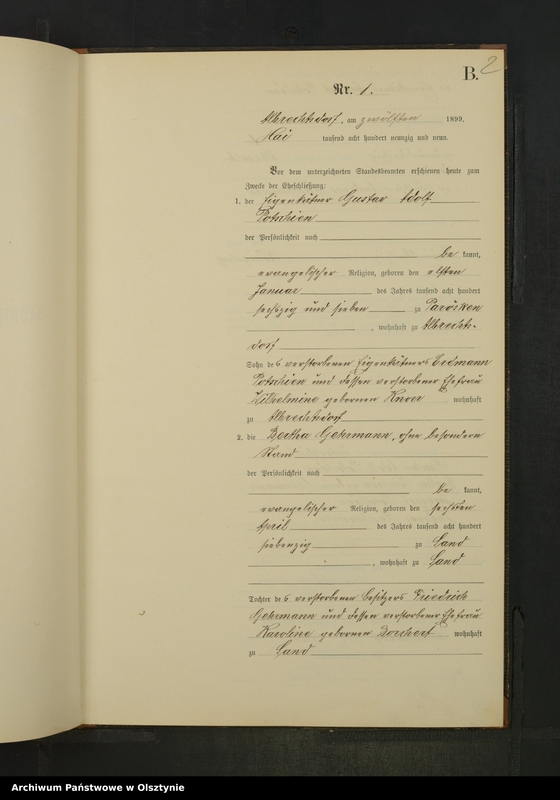 B. 2
Nr. 1.
Albrechtsdorf, am zwölften 1899.
Mai tausend acht hundert neunzig und neun.
Vor dem unterzeichneten Standesbeamten erschienen heute zum
Zwecke der Eheschließung:
1. der Eigenkätner Gustav Adolf
Potschien
der Persönlichkeit nach
be kannt,
evangelischer Religion, geboren den elften
Januar des Jahres tausend acht hundert
sechszig und sieben zu Parösken
, wohnhaft zu Albrechts-
dorf
Sohn des verstorbenen Eigenkätners Erdmann
Potschien und dessen verstorbener Ehefrau
Wilhelmine gebornen Knorr wohnhaft
zu Albrechtsdorf
2. die Bertha Gehrmann, ohne besondern
Stand
der Persönlichkeit nach
be kannt,
evangelischer Religion, geboren den sechsten
April des Jahres tausend acht hundert
siebenzig zu Sand
, wohnhaft zu Sand
Tochter des verstorbenen Besitzers Friedrich
Gehrmann und dessen verstorbener Ehefrau
Karoline gebornen Borchert wohnhaft
zu Sand
Archiwum Państwowe w Olsztynie